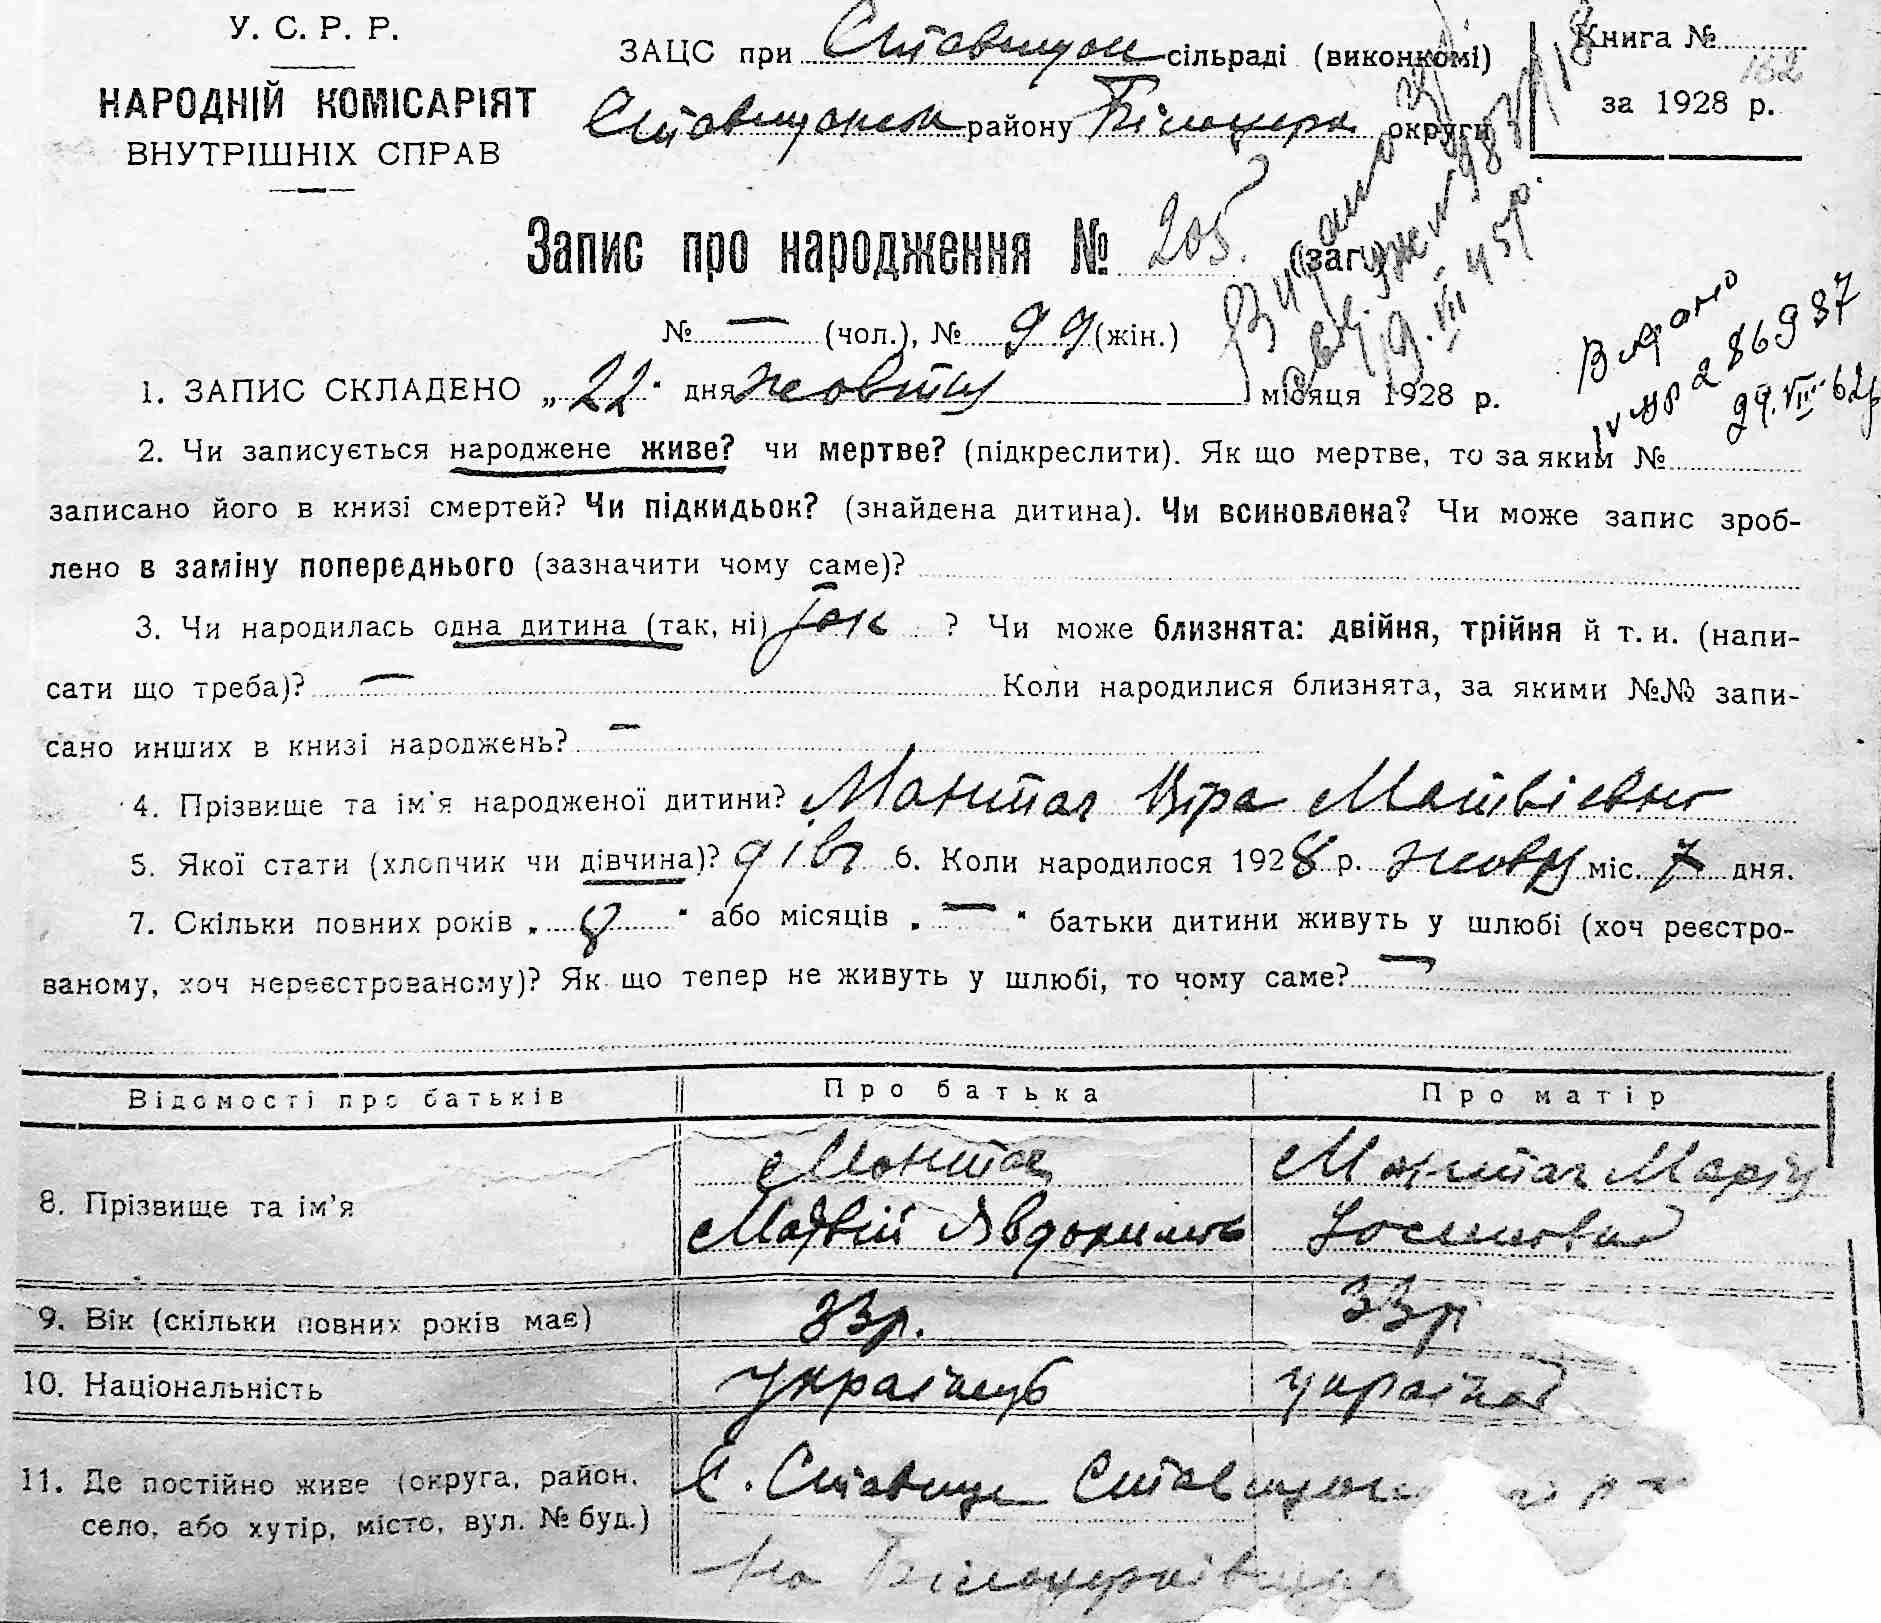 У. С. Р. Р.
НАРОДНІЙ КОМІСАРІЯТ
ВНУТРІШНІХ СПРАВ
ЗАЦС при Ставищан сільраді (виконкомі)
району Білоцерк округи
Книга №
162
за 1928 р.
Запис про народження № 205 (заг.)
№ — (чол.), № 99 (жін.)
Видано
19.III 45р.
Видано
IV УР 286987
29.VIII 62р
1. ЗАПИС СКЛАДЕНО „22" дня жовтня місяця 1928 р.
2. Чи записується народжене живе? чи мертве? (підкреслити). Як що мертве, то за яким №
записано його в книзі смертей? Чи підкидьок? (знайдена дитина). Чи всиновлена? Чи може запис зроб-
лено в заміну попереднього (зазначити чому саме)?
3. Чи народилась одна дитина (так, ні) так ? Чи може близнята: двійня, трійня й т. и. (напи-
сати що треба)? — Коли народилися близнята, за якими №№ запи-
сано инших в книзі народжень? —
4. Прізвище та ім'я народженої дитини? Монтач Віра Матвієвна
5. Якої стати (хлопчик чи дівчина)? дівч 6. Коли народилося 1928 р. жовт міс. 7 дня.
7. Скільки повних років „8" або місяців „—" батьки дитини живуть у шлюбі (хоч реєстро-
ваному, хоч нереєстрованому)? Як що тепер не живуть у шлюбі, то чому саме? —
Відомості про батьків Про батька Про матір
8. Прізвище та ім'я
Монтач
Матвій Явдокимов
Монтач Марія
9. Вік (скільки повних років має) 33р. 33р
10. Національність українець україн
11. Де постійно живе (округа, район,
село, або хутір, місто, вул. № буд.)
С. Ставище Ставищан
на Білоцерківщині